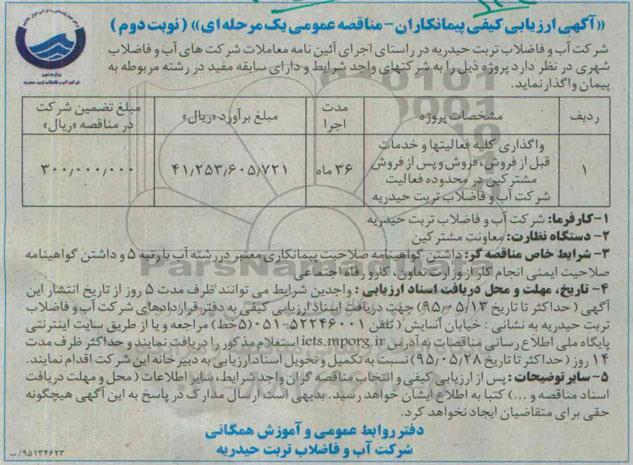 «آگهی ارزیابی کیفی پیمانکاران - مناقصه عمومی یک مرحله ای» (نوبت دوم)
شرکت آب و فاضلاب تربت حیدریه در راستای اجرای آئین نامه معاملات شرکت های آب و فاضلاب
شهری در نظر دارد پروژه ذیل را به شرکتهای واجد شرایط و دارای سابقه مفید در رشته مربوطه به
پیمان واگذار نماید.
ردیف
مشخصات پروژه
مدت اجرا
مبلغ برآورد «ریال»
مبلغ تضمین شرکت در مناقصه «ریال»
۱
واگذاری کلیه فعالیتها و خدمات
قبل از فروش، فروش و پس از فروش
مشترکین در محدوده فعالیت
شرکت آب و فاضلاب تربت حیدریه
۳۶ ماه
۴۱٫۲۵۳٫۶۰۵٫۷۲۱
۳۰۰٫۰۰۰٫۰۰۰
۱- کارفرما: شرکت آب و فاضلاب تربت حیدریه
۲- دستگاه نظارت: معاونت مشترکین
۳- شرایط خاص مناقصه گر: داشتن گواهینامه صلاحیت پیمانکاری معتبر در رشته آب با رتبه ۵ و داشتن گواهینامه
صلاحیت ایمنی انجام کار از وزارت تعاون، کار و رفاه اجتماعی
۴- تاریخ، مهلت و محل دریافت اسناد ارزیابی: واجدین شرایط می توانند ظرف مدت ۵ روز از تاریخ انتشار این
آگهی (حداکثر تا تاریخ ۹۵/۰۵/۱۳) جهت دریافت اسناد ارزیابی کیفی به دفتر قراردادهای شرکت آب و فاضلاب
تربت حیدریه به نشانی: خیابان آسایش (تلفن ۵۲۲۴۶۰۰۱-۰۵۱ (۵خط) مراجعه و یا از طریق سایت اینترنتی
پایگاه ملی اطلاع رسانی مناقصات به آدرس iets.mporg.ir استعلام مذکور را دریافت نمایند و حداکثر ظرف مدت
۱۴ روز (حداکثر تا تاریخ ۹۵/۰۵/۲۸) نسبت به تکمیل و تحویل اسناد ارزیابی به دبیرخانه این شرکت اقدام نمایند.
۵- سایر توضیحات: پس از ارزیابی کیفی و انتخاب مناقصه گران واجد شرایط، سایر اطلاعات (محل و مهلت دریافت
اسناد مناقصه و ...) کتبا به اطلاع ایشان خواهد رسید. بدیهی است ارسال مدارک در پاسخ به این آگهی هیچگونه
حقی برای متقاضیان ایجاد نخواهد کرد.
دفتر روابط عمومی و آموزش همگانی
شرکت آب و فاضلاب تربت حیدریه
۹۵۱۳۴۶۲۳/ب